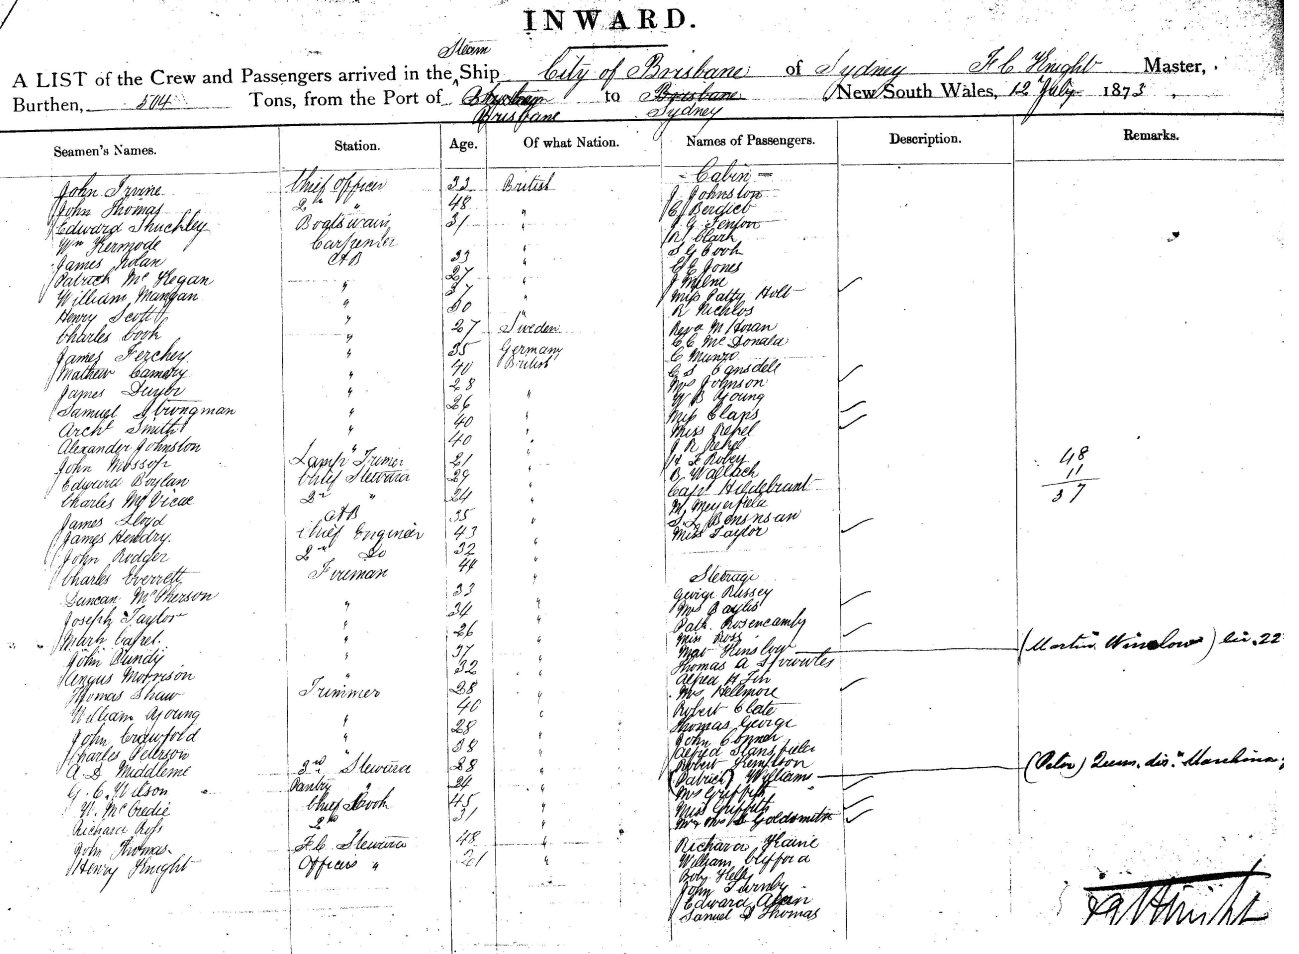 INWARD.
Steam
A LIST of the Crew and Passengers arrived in the ^ Ship City of Brisbane of Sydney F C Knight Master,
Burthen, 504 Tons, from the Port of to Brisbane New South Wales, 12 July 1873
Brisbane Sydney
Seamen's Names. Station. Age. Of what Nation. Names of Passengers. Description. Remarks.
Cabin
John Irvine Chief Officer 33 British J Johnston
John Thomas 2nd " 48 " C Berdict
Edward Thuckley Boatswain 31 " J G Fenton
Wm Kermode Carpenter " R Clark
James Nolan AB 33 " S G Cook
Patrick Mc Kegan " 27 " E E Jones
William Mangan " 37 " J Milne
Henry Scott " 30 " Miss Patty Holt
Charles Cook " 27 Sweden R Nichlos
James Ferchey " 35 Germany Revd M Horan
Mathew Camery " 40 British C C McDonald
James " 28 " C Munro
Samuel Strongman " 26 " C S Ransdell
Archd Smith " 40 " Mrs Johnson
Alexander Johnston " 40 " W B Young
John Mossop Lamp Trimer 21 " Miss Claps
Edward Boylan Chief Steward 29 " Miss Rebel
Charles McVicar 2nd " 24 " J R Rebel
James Lloyd AB 35 " H F Robey
James Hendry. Chief Engineer 43 " B Wallach
John Rodger 2nd Do 32 " Capt Hildebrant
Charles Everrett Fireman 44 " M Meyerfeld
Duncan McPherson " 33 " S L Bensusan
Joseph Taylor " 34 " Miss Taylor
48
11
37
Steerage
Mark Capel. " 26 " George Russey
John Bundy " 37 " Mrs Baylis
Angus Morrison " 32 " Patk Rosencamby
Thomas Shaw Trimmer 28 " Miss Ross
William Young " 40 " Mat Hinslow (Martin Winslow)
John Crawford " 28 " Thomas A Sprowles
Charles Peterson " 38 " Alfred H Fin
A D Middleme 3rd Steward 28 " Mrs Hellmore
G. C. Wilson Pantry " 24 " Robert Clate
W. McCredie Chief Cook 45 " Thomas George
Richard Ross 2nd " 31 " John Conner
John Thomas F.C. Steward 48 " Alfred Stansfield
Henry Knight Officers " 21 " Robert Kempson
(Patrick) Williams (Peter)
Mrs Griffith
Miss Griffith
Mr & Mrs L Goldsmith
Richard Kaine
William Clyfford
Boby Kelly
John Turnby
Edward
Samuel D Thomas
F C Knight